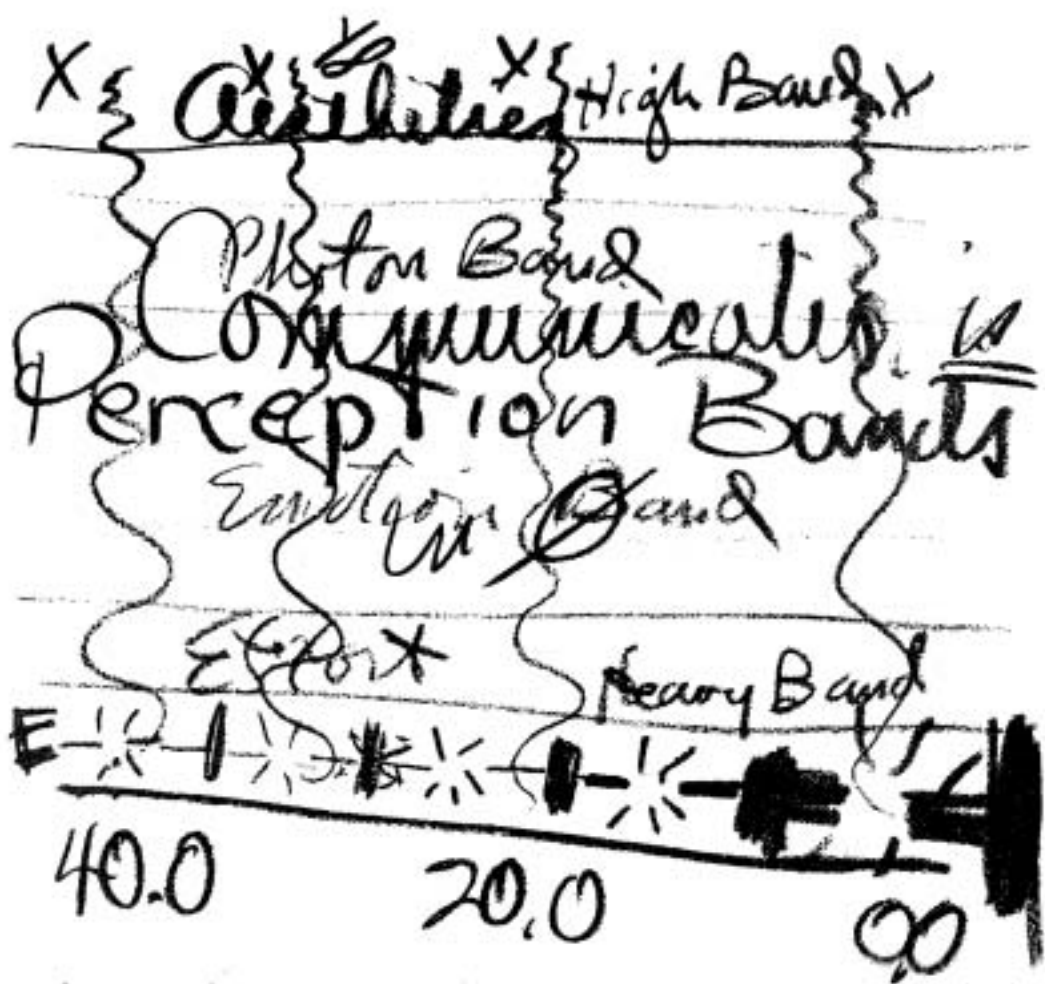 X X X X
Aesthetics High Band
Photon Band
Communication is
Perception Bands
Emotion Band
Effort
Heavy Band
E
40.0 20.0 0.0